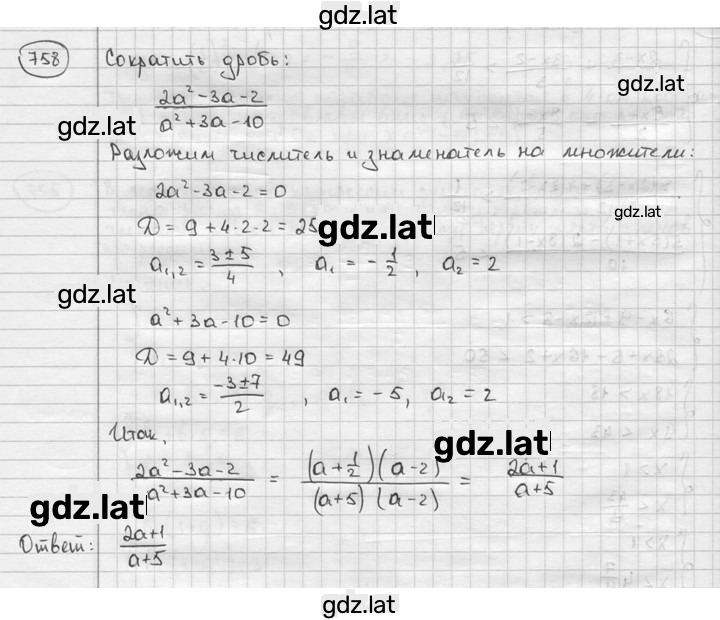 gdz.lat
758 Сократить дробь:
gdz.lat
(2a² - 3a - 2)/(a² + 3a - 10)
gdz.lat
Разложим числитель и знаменатель на множители:
2a² - 3a - 2 = 0
gdz.lat
D = 9 + 4·2·2 = 25
gdz.lat
a₁,₂ = (3 ± 5)/4 , a₁ = - 1/2 , a₂ = 2
gdz.lat
a² + 3a - 10 = 0
D = 9 + 4·10 = 49
a₁,₂ = (-3 ± 7)/2 , a₁ = - 5, a₂ = 2
Итак,
gdz.lat
(2a² - 3a - 2)/(a² + 3a - 10) = ((a + 1/2)(a - 2))/((a + 5)(a - 2)) = (2a + 1)/(a + 5)
gdz.lat
Ответ: (2a + 1)/(a + 5)
gdz.lat